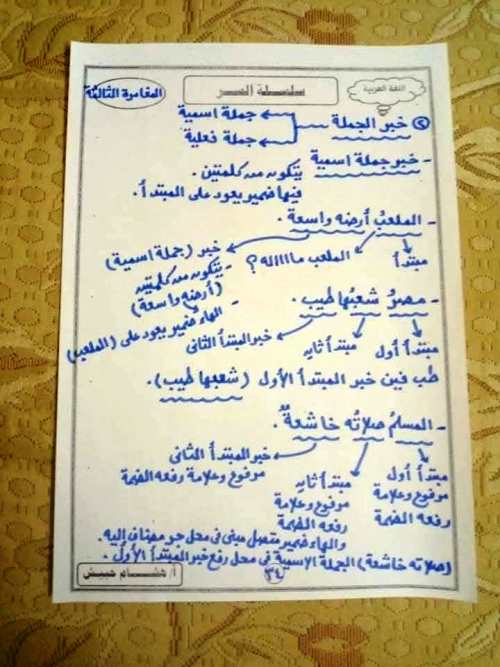 اللغة العربية
سلسلة العز
المغامرة الثالثة
② خبر الجملة
جملة اسمية
جملة فعلية
- خبر جملة اسمية
يتكون من كلمتين.
فيها ضمير يعود على المبتدأ.
- الملعب أرضه واسعة.
مبتدأ
الملعب مااااله؟
خبر (جملة اسمية)
- يتكون من كلمتين
(أرضه واسعة)
- الهاء ضمير يعود على (الملعب)
- مصرُ شعبُها طيب.
مبتدأ أول
مبتدأ ثان
خبر المبتدأ الثانى
طب فين خبر المبتدأ الأول (شعبها طيب).
- المسلمُ صلاتُه خاشعةٌ.
مبتدأ أول
مرفوع وعلامة
رفعه الضمة
مبتدأ ثان
مرفوع وعلامة
رفعه الضمة
خبر المبتدأ الثانى
مرفوع وعلامة رفعه الضمة
والهاء ضمير متصل مبنى فى محل جر مضاف إليه.
(صلاته خاشعة) الجملة الإسمية فى محل رفع خبر المبتدأ الأول.
٣٤
أ/ هشام حبيش